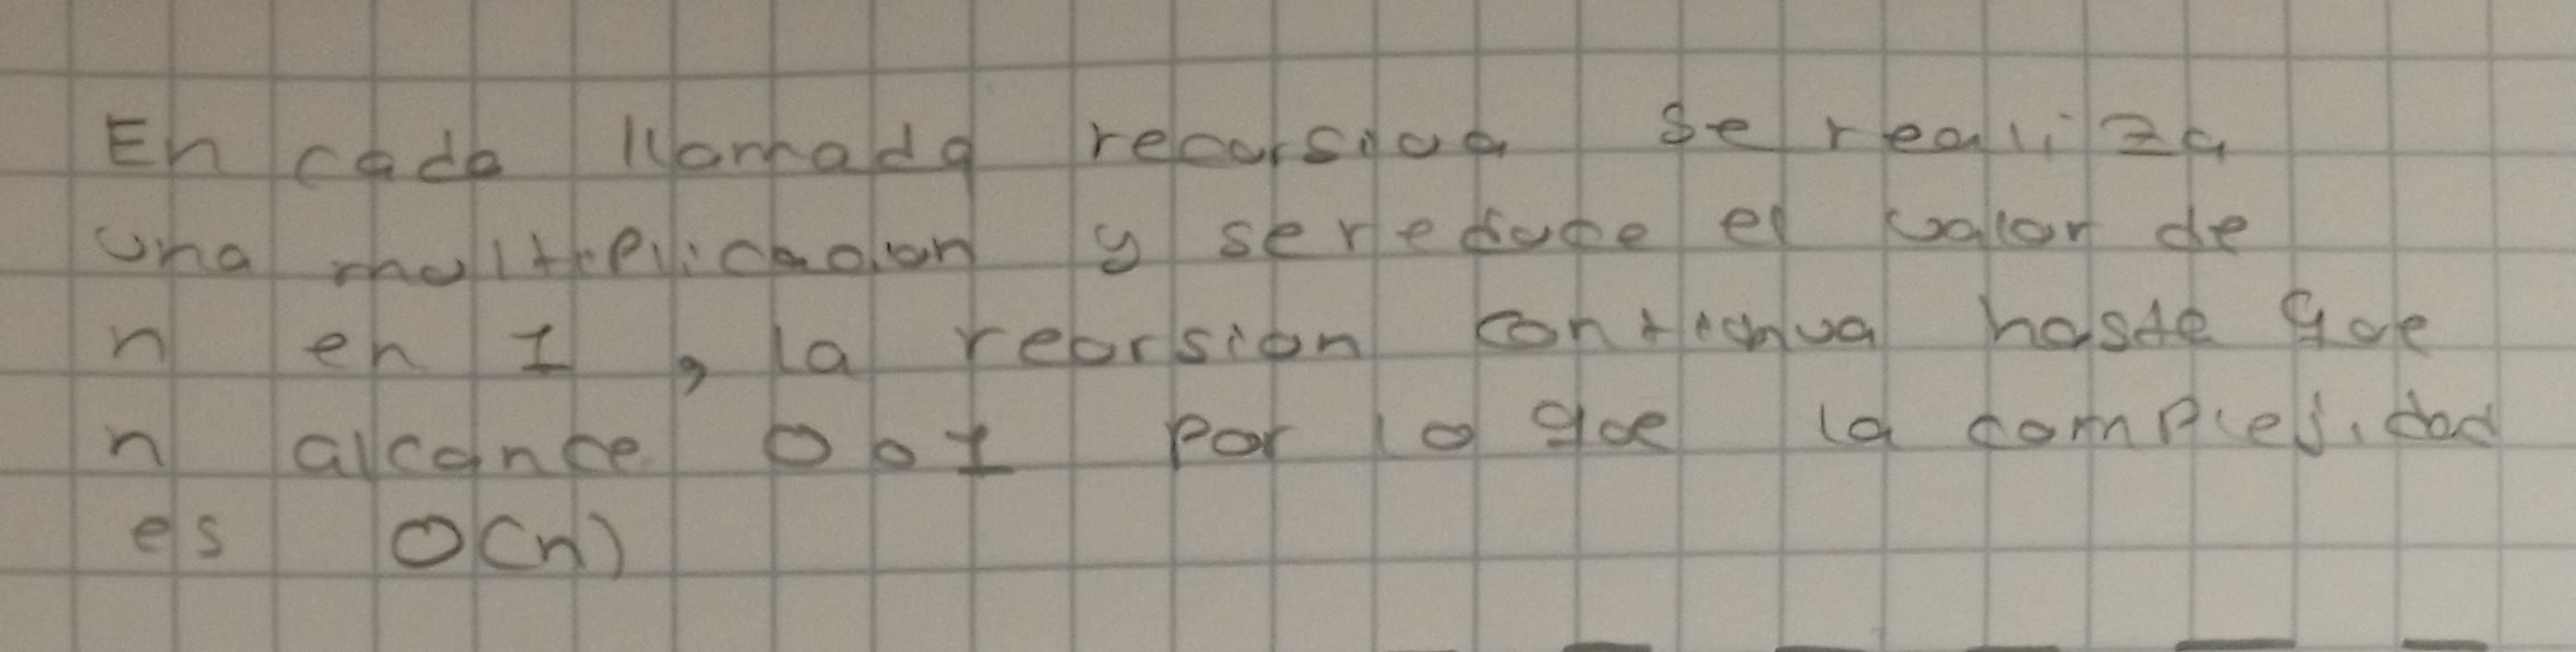 En cada llamada recursiva se realiza
una multiplicacion y se reduce el valor de
n en 1, la recrsion continua haste que
n alcance 0 o 1 por lo que la complejidad
es O(n)